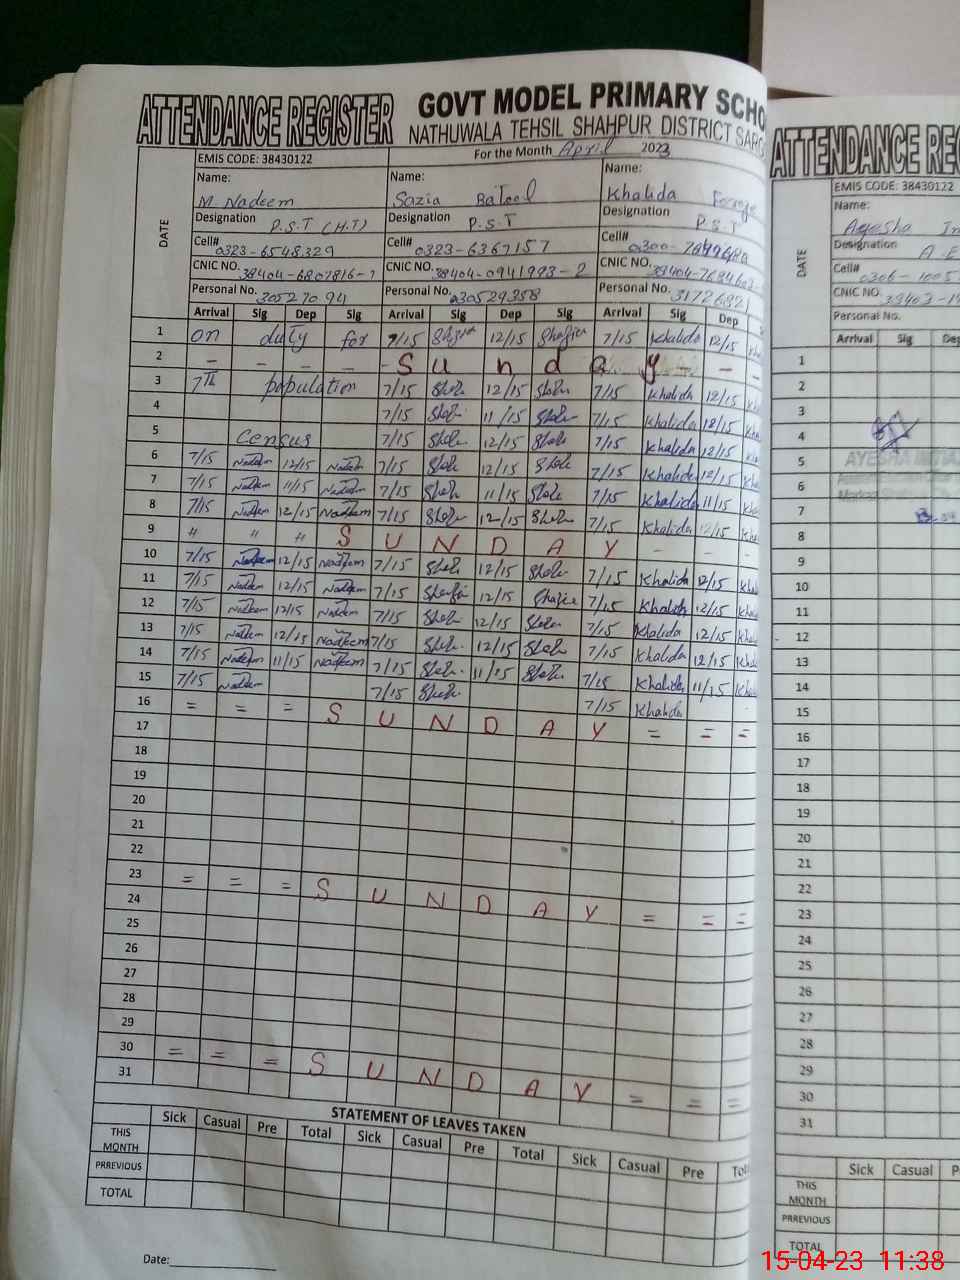 ATTENDANCE REGISTER GOVT MODEL PRIMARY SCHO
NATHUWALA TEHSIL SHAHPUR DISTRICT SARG
EMIS CODE: 38430122 For the Month April 2023
DATE
Name: Name: Name:
M. Nadeem Sazia Batool Khalida
Designation P.S.T (H.T) Designation P.S.T Designation P.S.T
Cell# 0323-6548329 Cell# 0323-6367157 Cell#
CNIC NO. 38404-6807816-7 CNIC NO. 38404-0941993-2 CNIC NO.
Personal No. 30527094 Personal No. 30529358 Personal No. 3172682
Arrival Sig Dep Sig Arrival Sig Dep Sig Arrival Sig Dep S
1 on duty for 7/15 12/15 7/15 Khalida 12/15
2 - - - - Sunday - -
3 7th population 7/15 12/15 7/15 Khalida 12/15
4 7/15 11/15 7/15 Khalida 12/15
5 Census 7/15 12/15 7/15 Khalida 12/15
6 7/15 Nadeem 12/15 Nadeem 7/15 12/15 7/15 Khalida 12/15
7 7/15 Nadeem 11/15 Nadeem 7/15 11/15 7/15 Khalida 11/15
8 7/15 Nadeem 12/15 Nadeem 7/15 12/15 7/15 Khalida 12/15
9 " " " SUNDAY - - -
10 7/15 Nadeem 12/15 Nadeem 7/15 12/15 7/15 Khalida 12/15
11 7/15 Nadeem 12/15 Nadeem 7/15 12/15 7/15 Khalida 12/15
12 7/15 Nadeem 12/15 Nadeem 7/15 12/15 7/15 Khalida 12/15
13 7/15 Nadeem 12/15 Nadeem 7/15 12/15 7/15 Khalida 12/15
14 7/15 Nadeem 11/15 Nadeem 7/15 11/15 7/15 Khalida 11/15
15 7/15 Nadeem 7/15 7/15 Khalida
16 = = = SUNDAY = = =
17
18
19
20
21
22
23 = = = SUNDAY = = =
24
25
26
27
28
29
30 = = = SUNDAY = = =
31
STATEMENT OF LEAVES TAKEN
Sick Casual Pre Total Sick Casual Pre Total Sick Casual Pre Tot
THIS MONTH
PRREVIOUS
TOTAL
Date:
ATTENDANCE REG
EMIS CODE: 38430122
DATE
Name:
Ayesha
Designation
Cell#
CNIC NO.
Personal No.
Arrival Sig Dep
1
2
3
4
5
AYESHA
6
7
8
9
10
11
12
13
14
15
16
17
18
19
20
21
22
23
24
25
26
27
28
29
30
31
Sick Casual P
THIS MONTH
PRREVIOUS
TOTAL
15-04-23 11:38